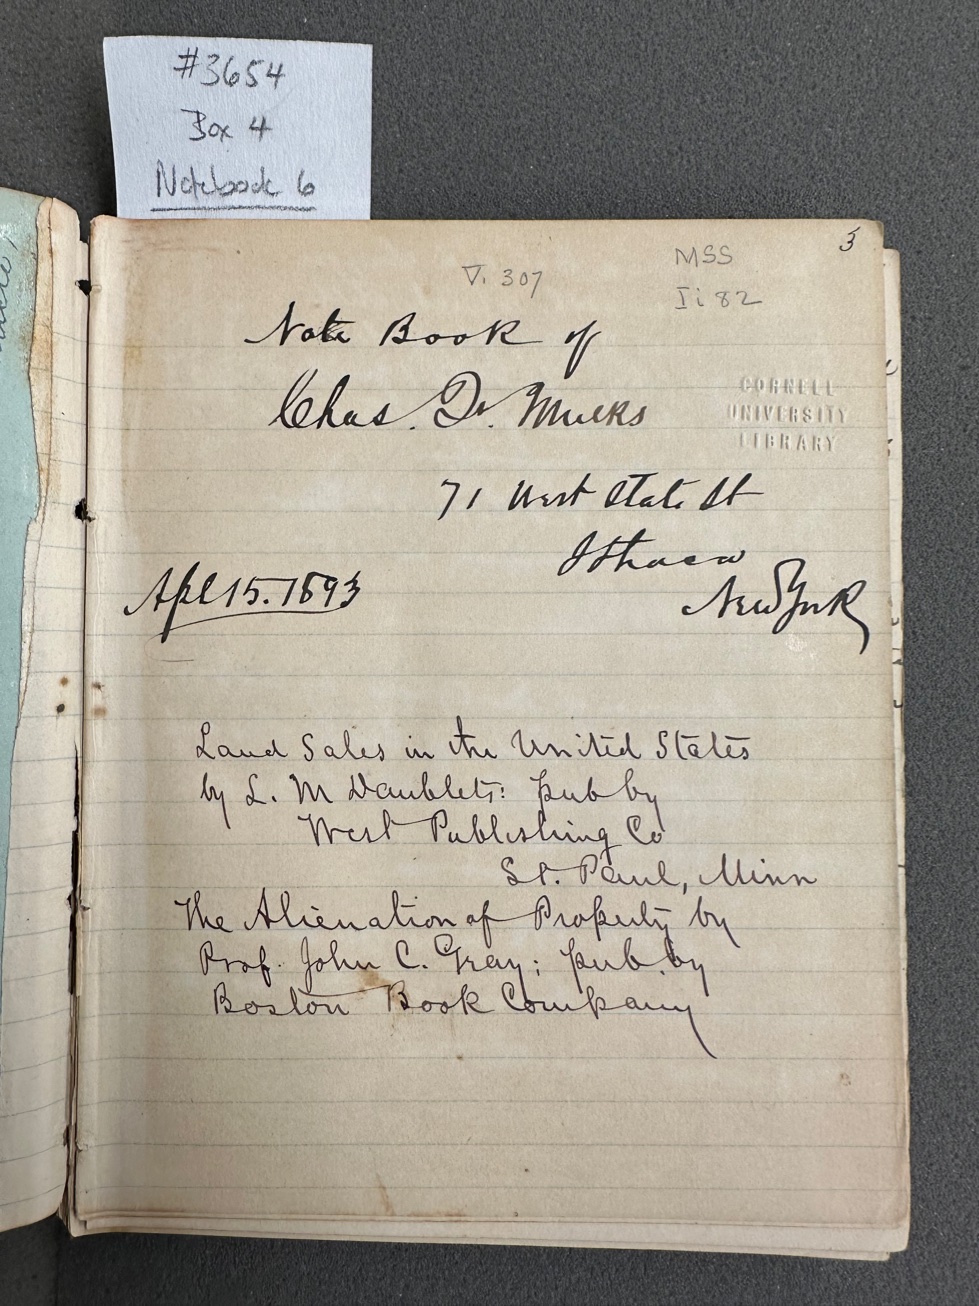 #3654
Box 4
Notebook 6
3
V. 307
MSS
Ii 82
Note Book of
Chas. D. Mulks
CORNELL
UNIVERSITY
LIBRARY
71 West State St
Ithaca
New York
Apl 15. 1893
Land Sales in the United States
by L. M Daublets: pub by
West Publishing Co
St. Paul, Minn
The Alienation of Property by
Prof. John C. Gray; pub. by
Boston Book Company